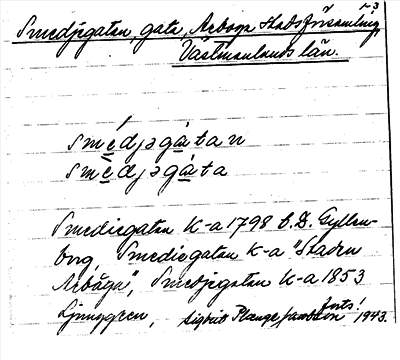 Smedjegatan, gata, Arboga stadsförsamling,
Västmanlands län.
smedjəgatan
smedjəgata
Smediegatan K-a 1798 C.D. Gyllen-
borg, Smediegatan K-a "Staden
Arboga", Smedjegatan K-a 1853
Ljunggren,
forts!
Sigbrit Plænge Jacobson 1943.